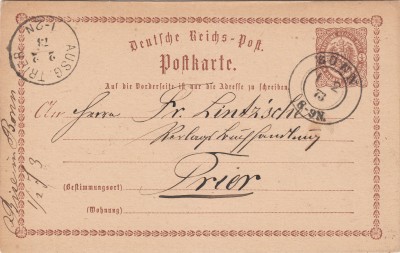 Deutsche Reichs-Post.
Postkarte.
Auf die Vorderseite ist nur die Adresse zu schreiben.
An Herren Fr. Lintz'sche
Verlagsbuchhandlung
(Bestimmungsort)
Trier
(Wohnung)
AUSG. TRIER
2 2
1-2N
BONN
1 2
73
in Bonn
1/2 73